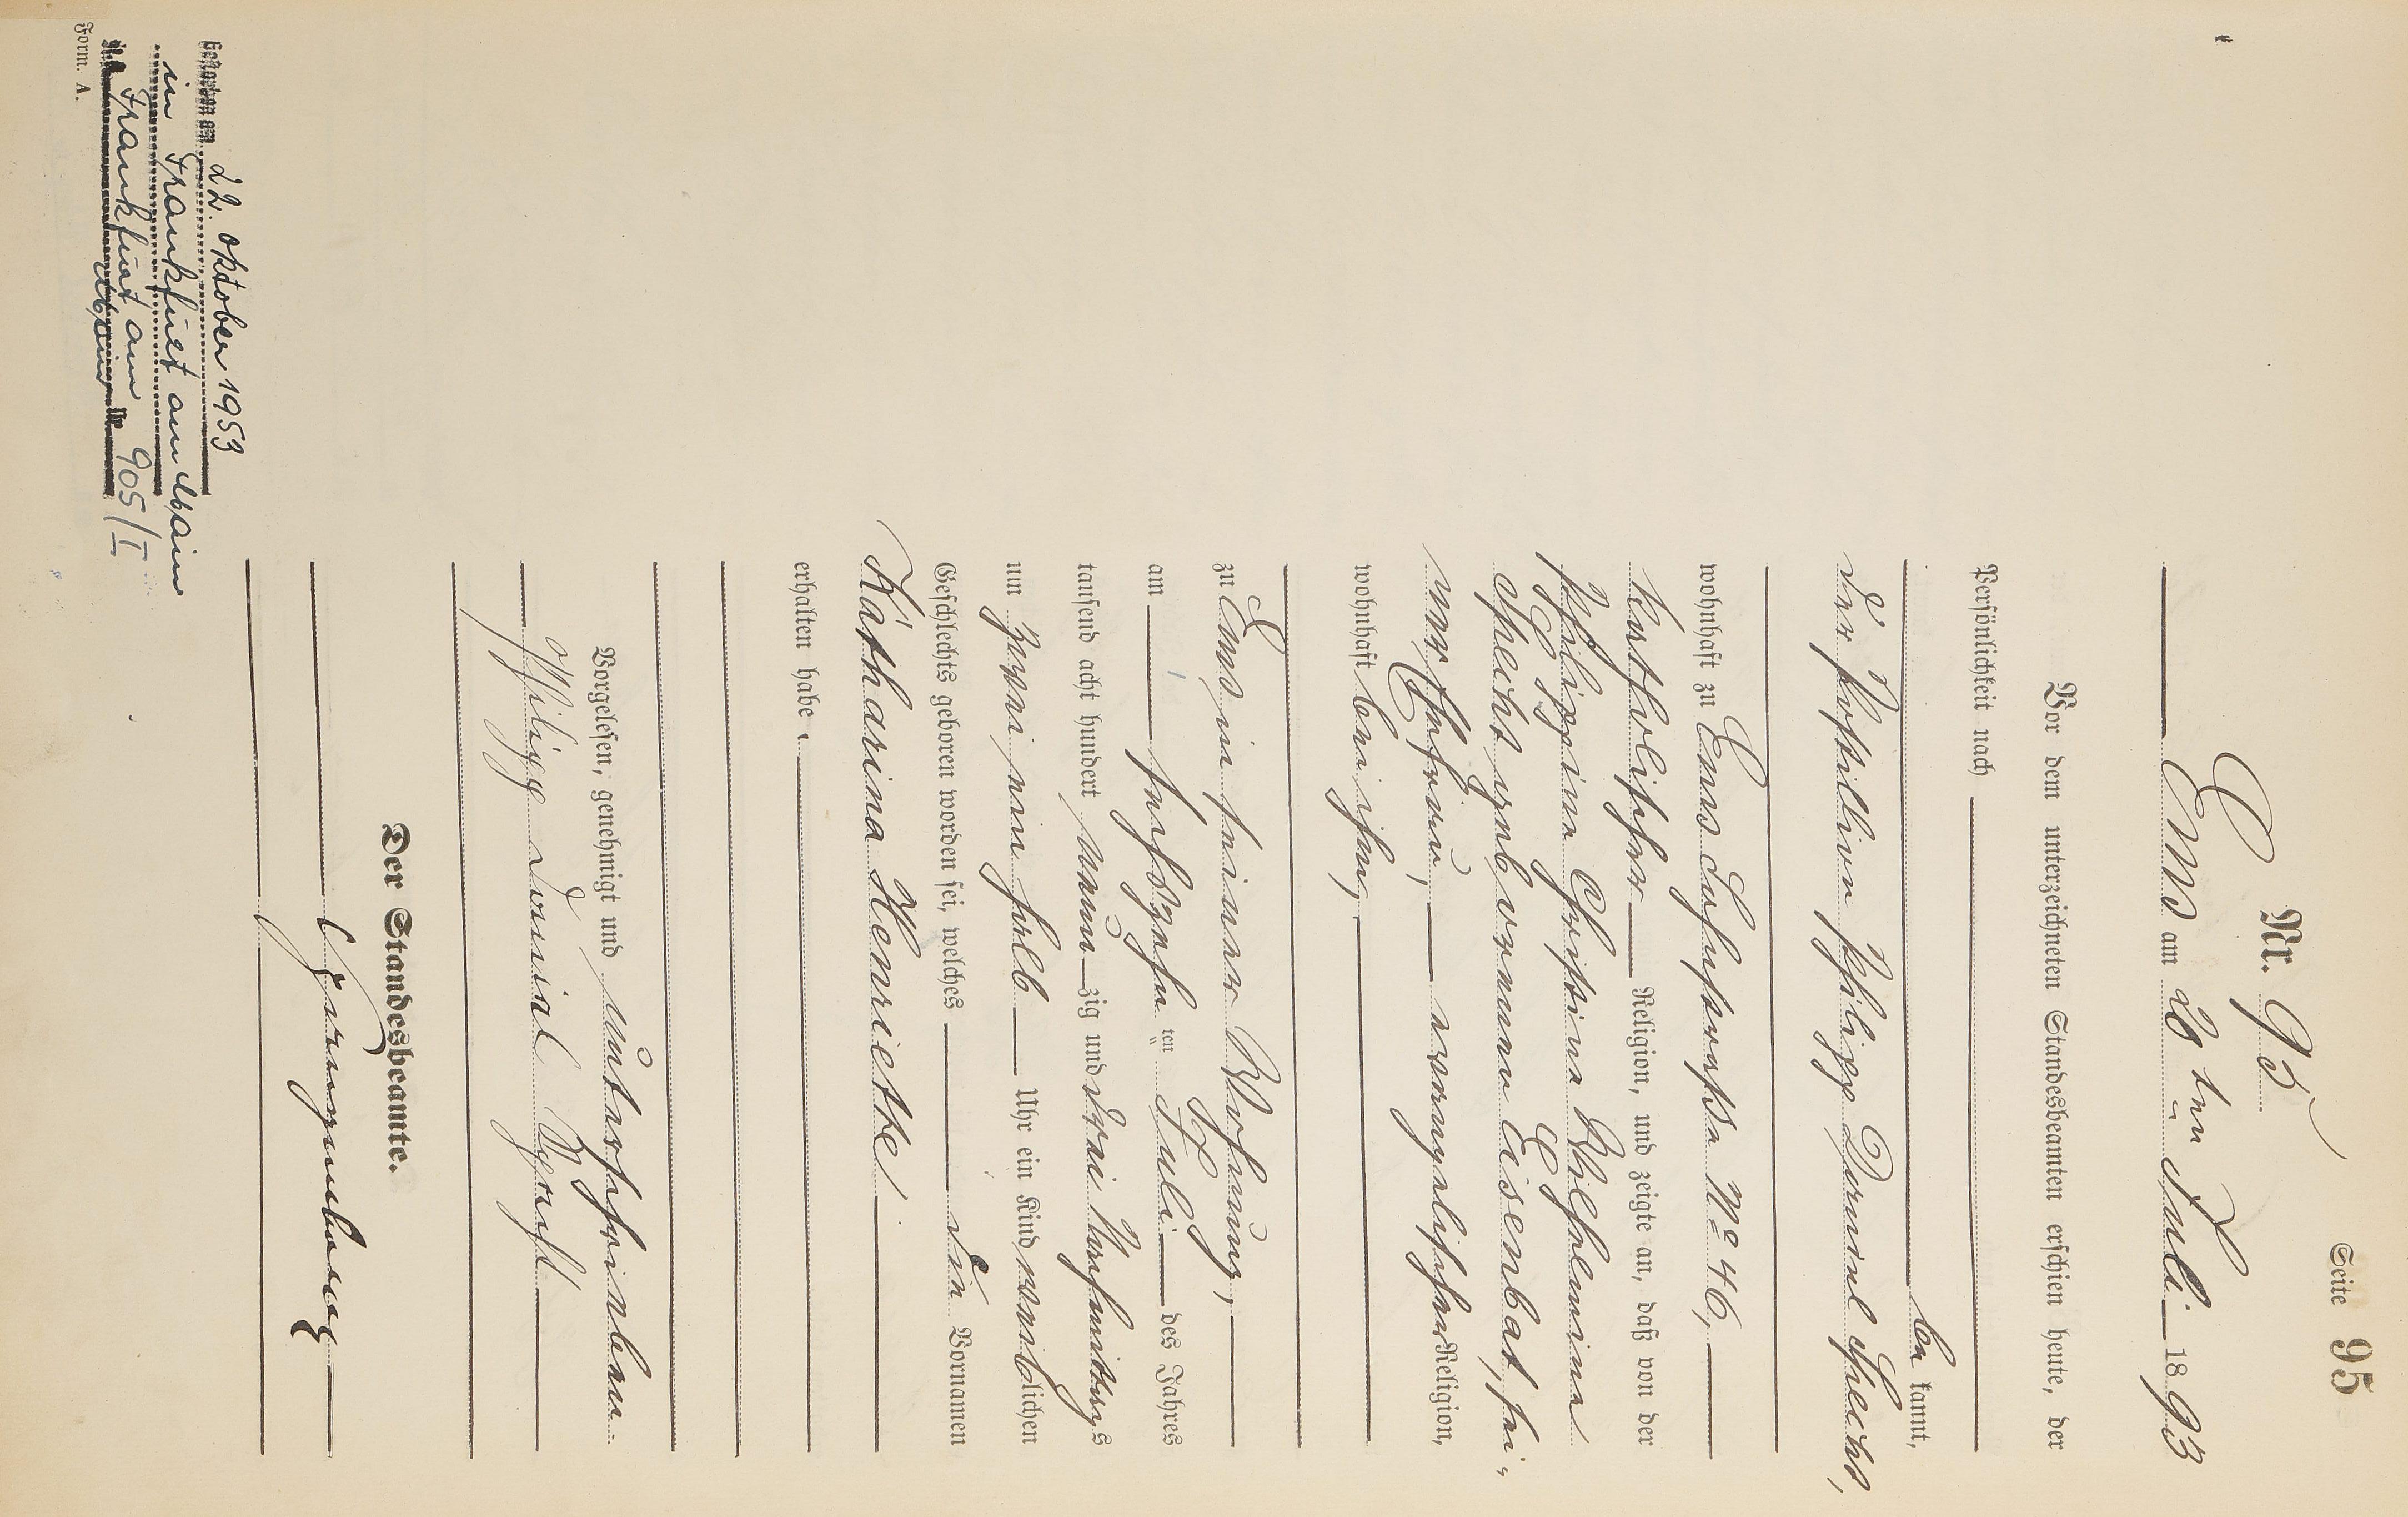 Seite 95
Nr. 95
Ems am 20 ten Juli 1893
Vor dem unterzeichneten Standesbeamten erschien heute, der
Persönlichkeit nach
be kannt,
der Postillion Philipp Daniel Specht,
wohnhaft zu Ems Lahnstraße No 46,
katholischer Religion, und zeigte an, daß von der
Philippine Christina Wilhelmine
Specht geborenen Eisenbat, sei-
ner Ehefrau, evangelischer Religion,
wohnhaft bei ihm,
zu Ems in seiner Wohnung,
am sechszehn ten Juli des Jahres
tausend acht hundert neun zig und drei Nachmittags
um zwei ein halb Uhr ein Kind weib lichen
Geschlechts geboren worden sei, welches die Vornamen
Katharina Henriette
erhalten habe.
Vorgelesen, genehmigt und unterschrieben
Philipp Daniel Specht
Der Standesbeamte.
Gestorben am 22. Oktober 1953
in Frankfurt am Main
Frankfurt am Nr. 905/I
Main
Form. A.